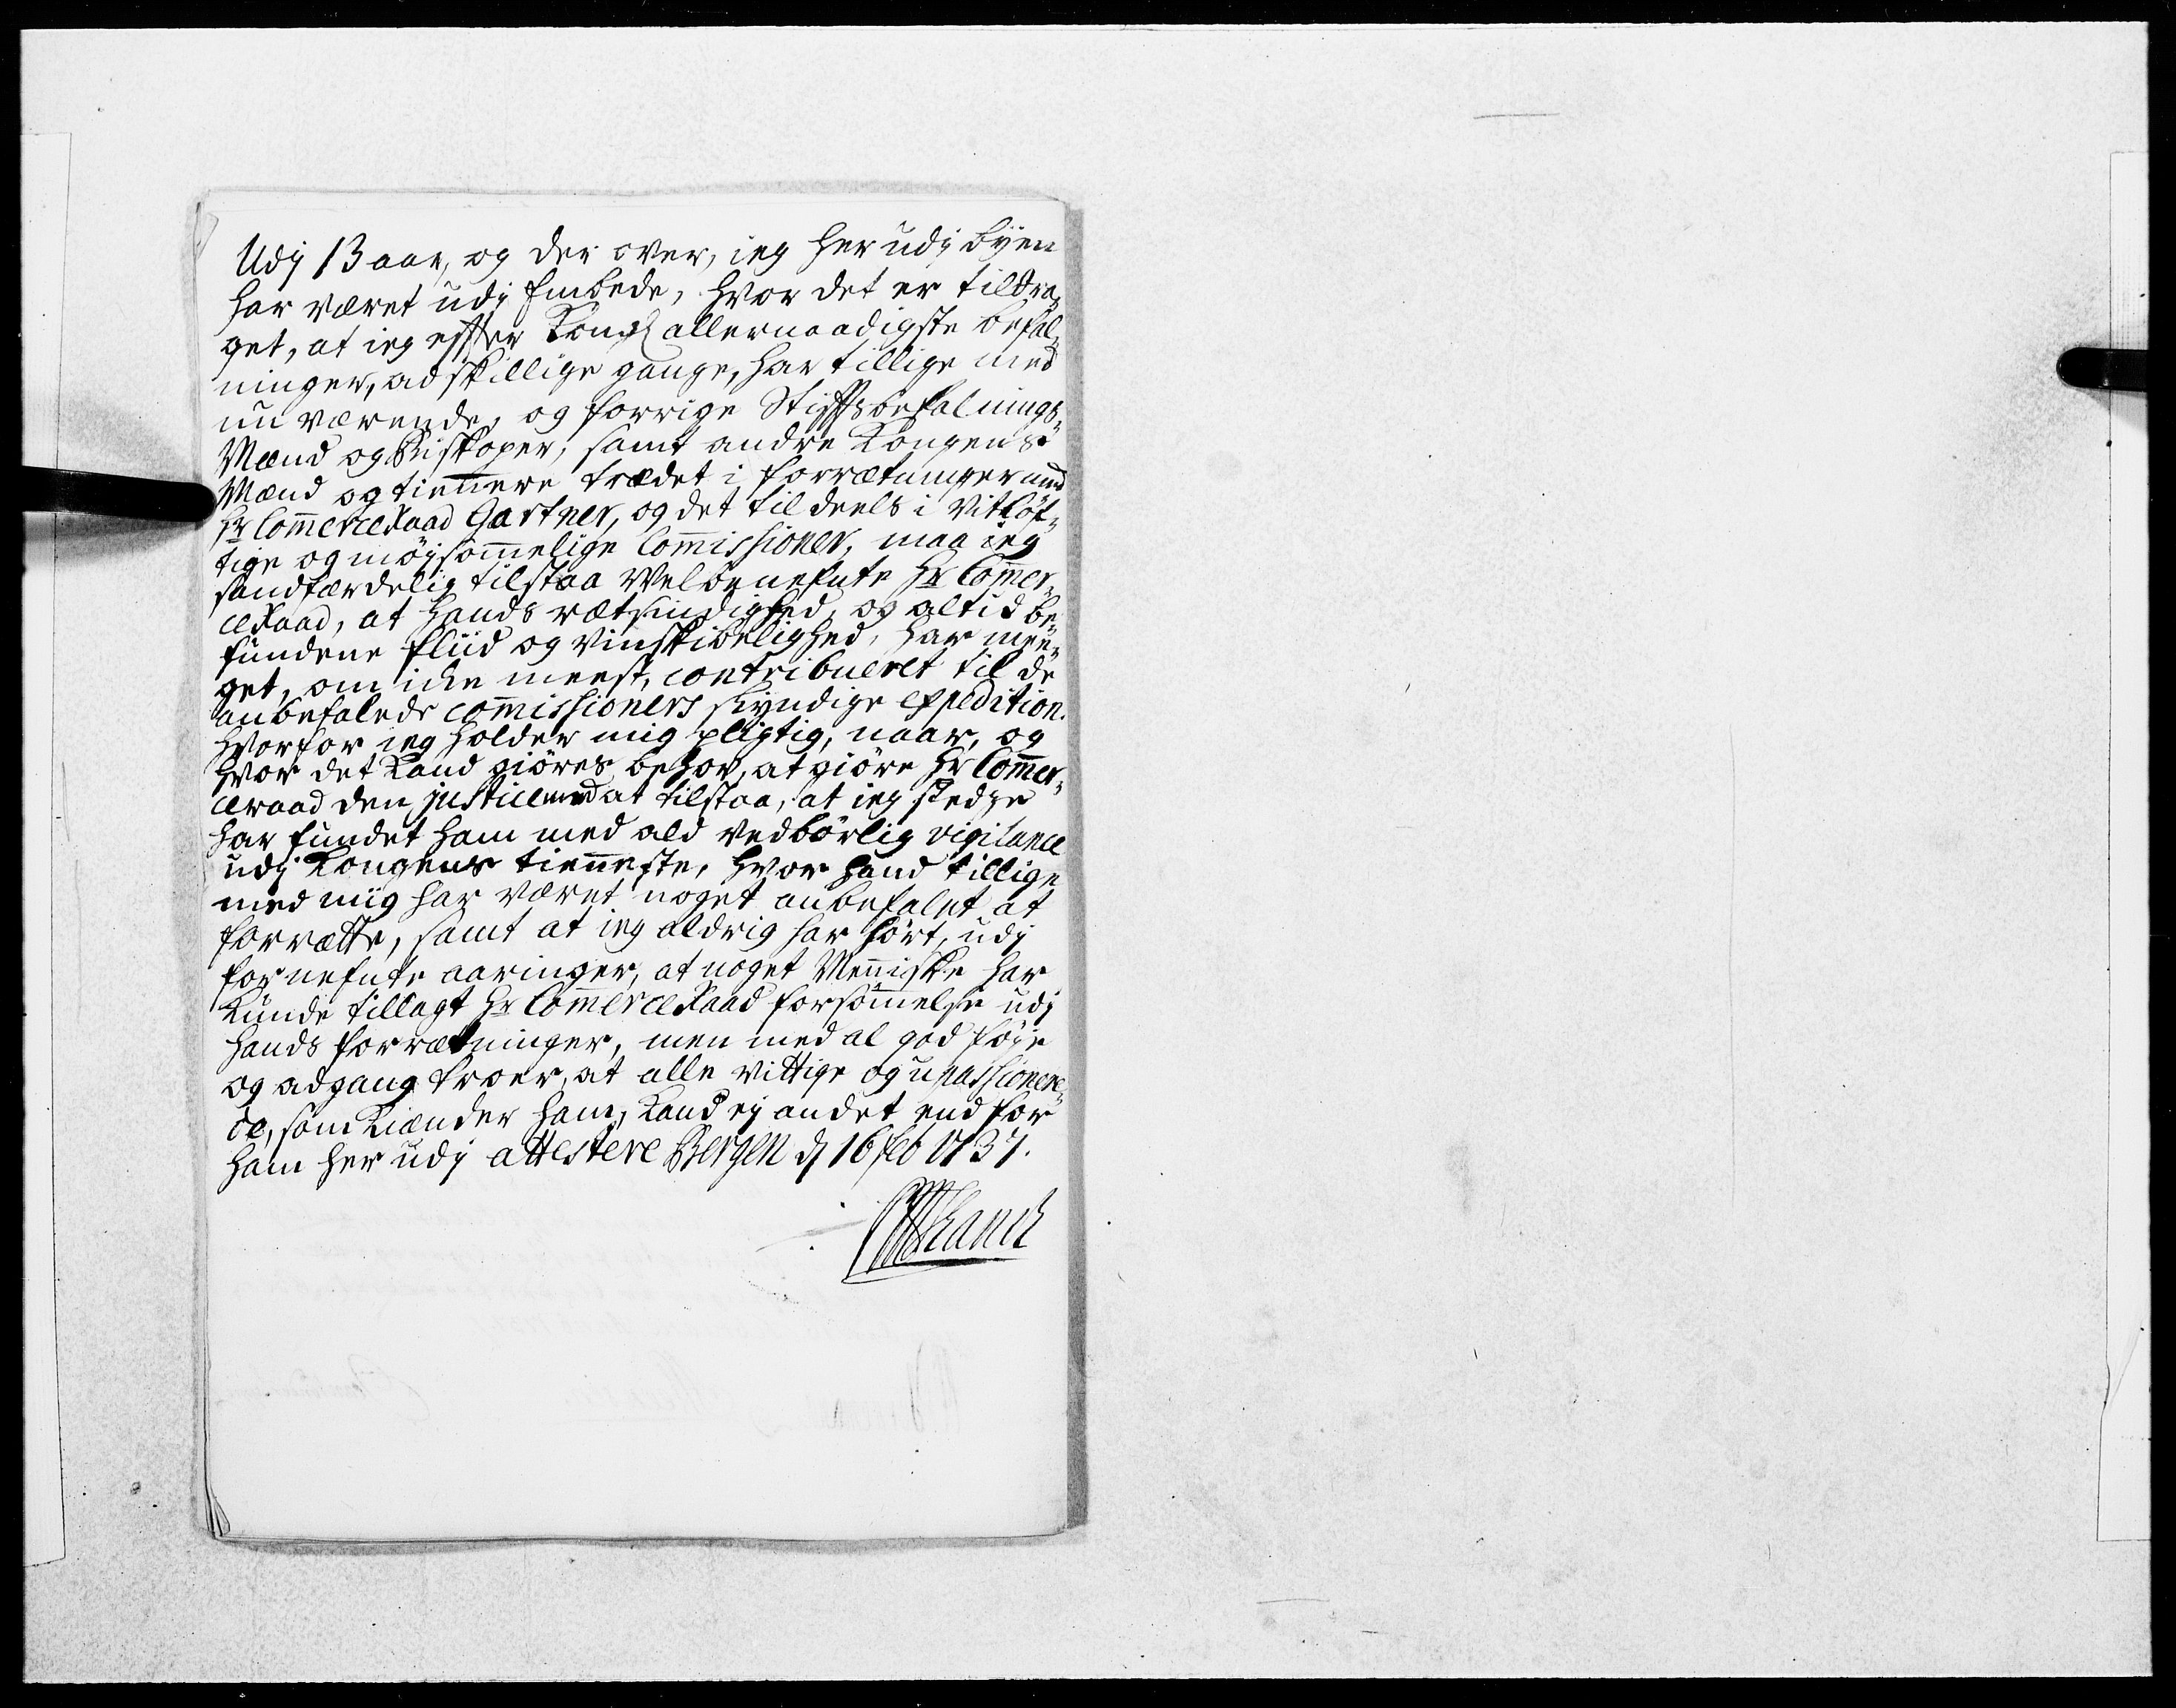 Udj 13 aar, og der over, ieg her udj byen
har været udj Embede, hvor det er tildra-
get, at ieg efter Kongl allernaadigste befal-
ninger, adskillige gange, har tillige med
nu værende, og forrige Stiftsbefalnings-
Mænd og Biskoper, samt andre Kongens
Mænd og tiennere trædet i forrætninger med
Hr Commerce Raad Gartner, og det til deels i Vitløf-
tige og møjsommelige Commissioner, maa ieg
sandfærdelig tilstaa Velbenefnte Hr Commer-
ce Raad, at hands rætsindighed, og altid be-
fundene fliid og vinskibelighed, har mee-
get, om icke meest, contribueret til de
anbefalede commissioners skyndige expedition.
hvorfor ieg holder mig pligtig, naar, og
hvor det kand giöres behov, at giöre Hr Commer-
ceraad den justice med at tilstaa, at ieg stedze
har fundet ham med ald vedbörlig vigilance
udj Kongens tienneste, hvor hand tillige
med miig har været noget anbefalet at
forrætte, samt at ieg aldrig har hört, udj
fornefnte aaringer, at noget Menniske har
kunde tillagt Hr Commerce Raad forsömmelse udj
hands forrætninger, men med al god föje
og adgang troer, at alle vittige og upassionere-
de, som kiender ham, kand ej andet end for
ham her udj attestere Bergen d 16 feb 1737.